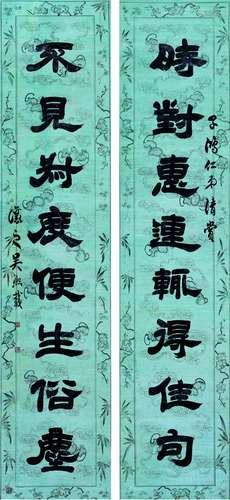 子鴻仁弟清賞
時對惠連輒得佳句
不見叔度便生俗塵
讓之吳熙載